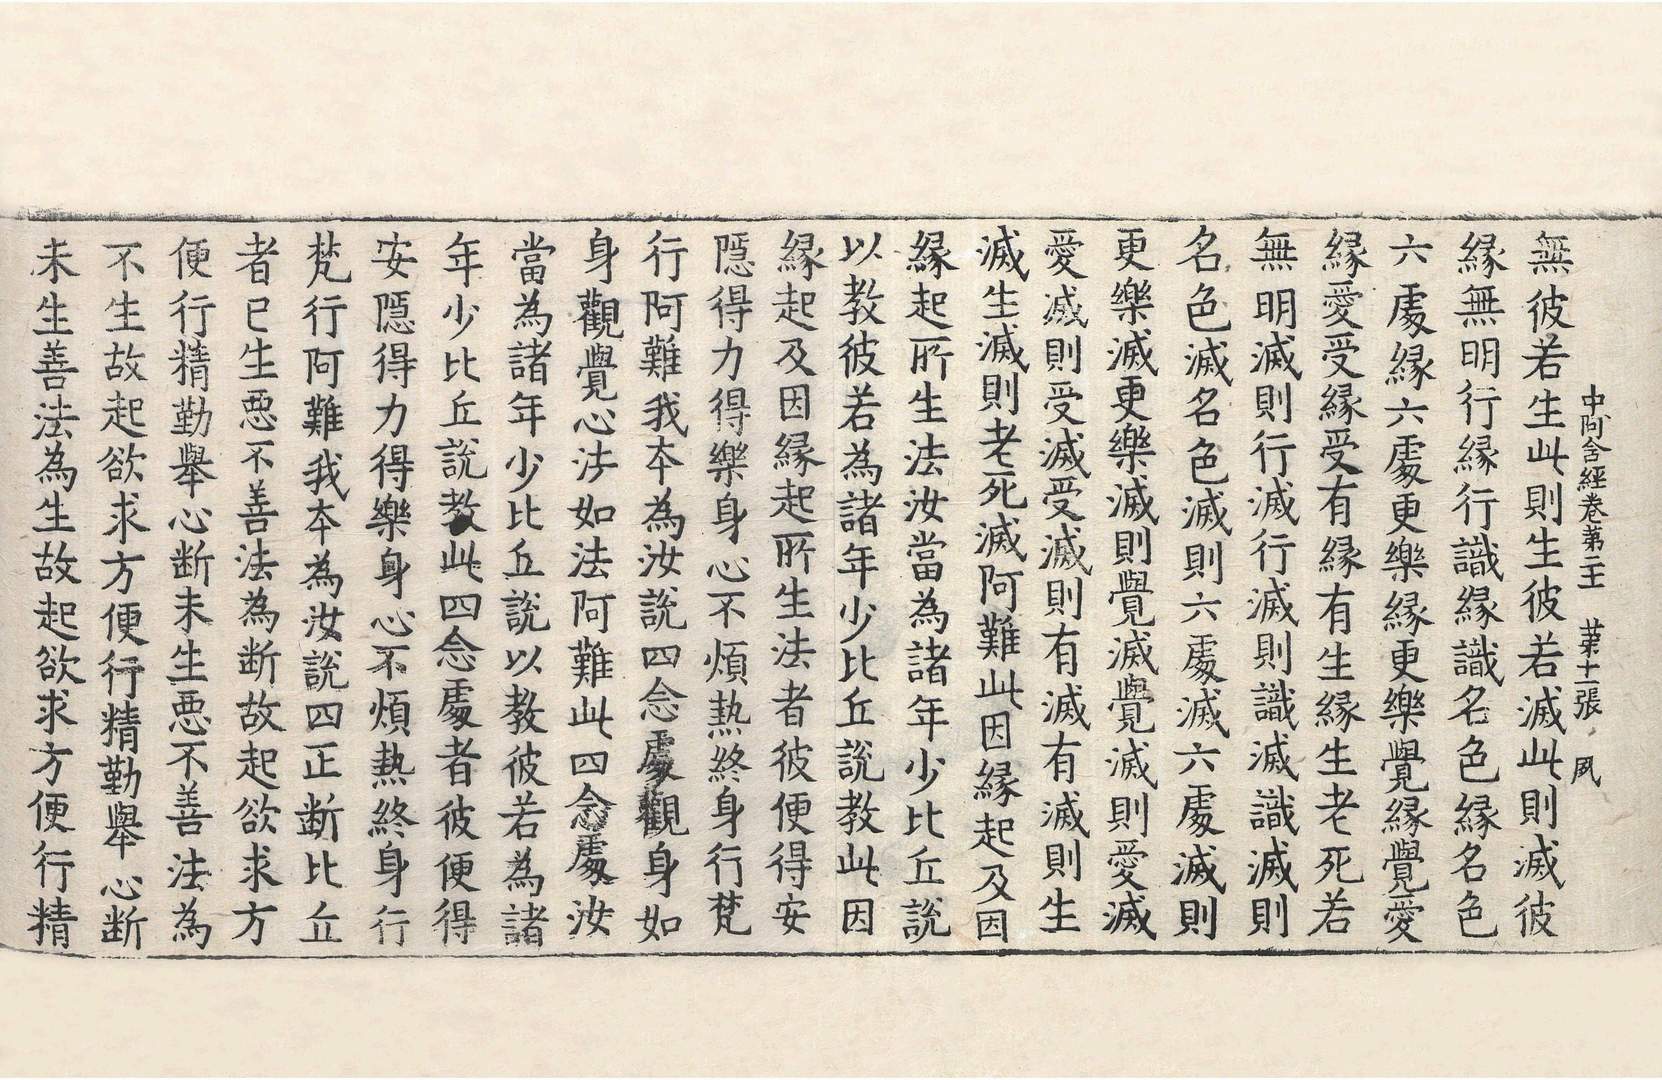 中阿含經卷苐二十一　苐十一張　夙
無彼若生此則生彼若滅此則滅彼
縁無明行縁行識縁識名色縁名色
六處縁六處更樂縁更樂覺縁覺愛
縁愛受縁受有縁有生縁生老死若
無明滅則行滅行滅則識滅識滅則
名色滅名色滅則六處滅六處滅則
更樂滅更樂滅則覺滅覺滅則愛滅
愛滅則受滅受滅則有滅有滅則生
滅生滅則老死滅阿難此因縁起及因
縁起所生法汝當為諸年少比丘說
以教彼若為諸年少比丘說教此因
縁起及因縁起所生法者彼便得安
隱得力得樂身心不煩熱終身行梵
行阿難我本為汝說四念處觀身如
身觀覺心法如法阿難此四念處汝
當為諸年少比丘說以教彼若為諸
年少比丘說教此四念處者彼便得
安隱得力得樂身心不煩熱終身行
梵行阿難我本為汝說四正断比丘
者已生惡不善法為断故起欲求方
便行精勤舉心断未生惡不善法為
不生故起欲求方便行精勤舉心断
未生善法為生故起欲求方便行精